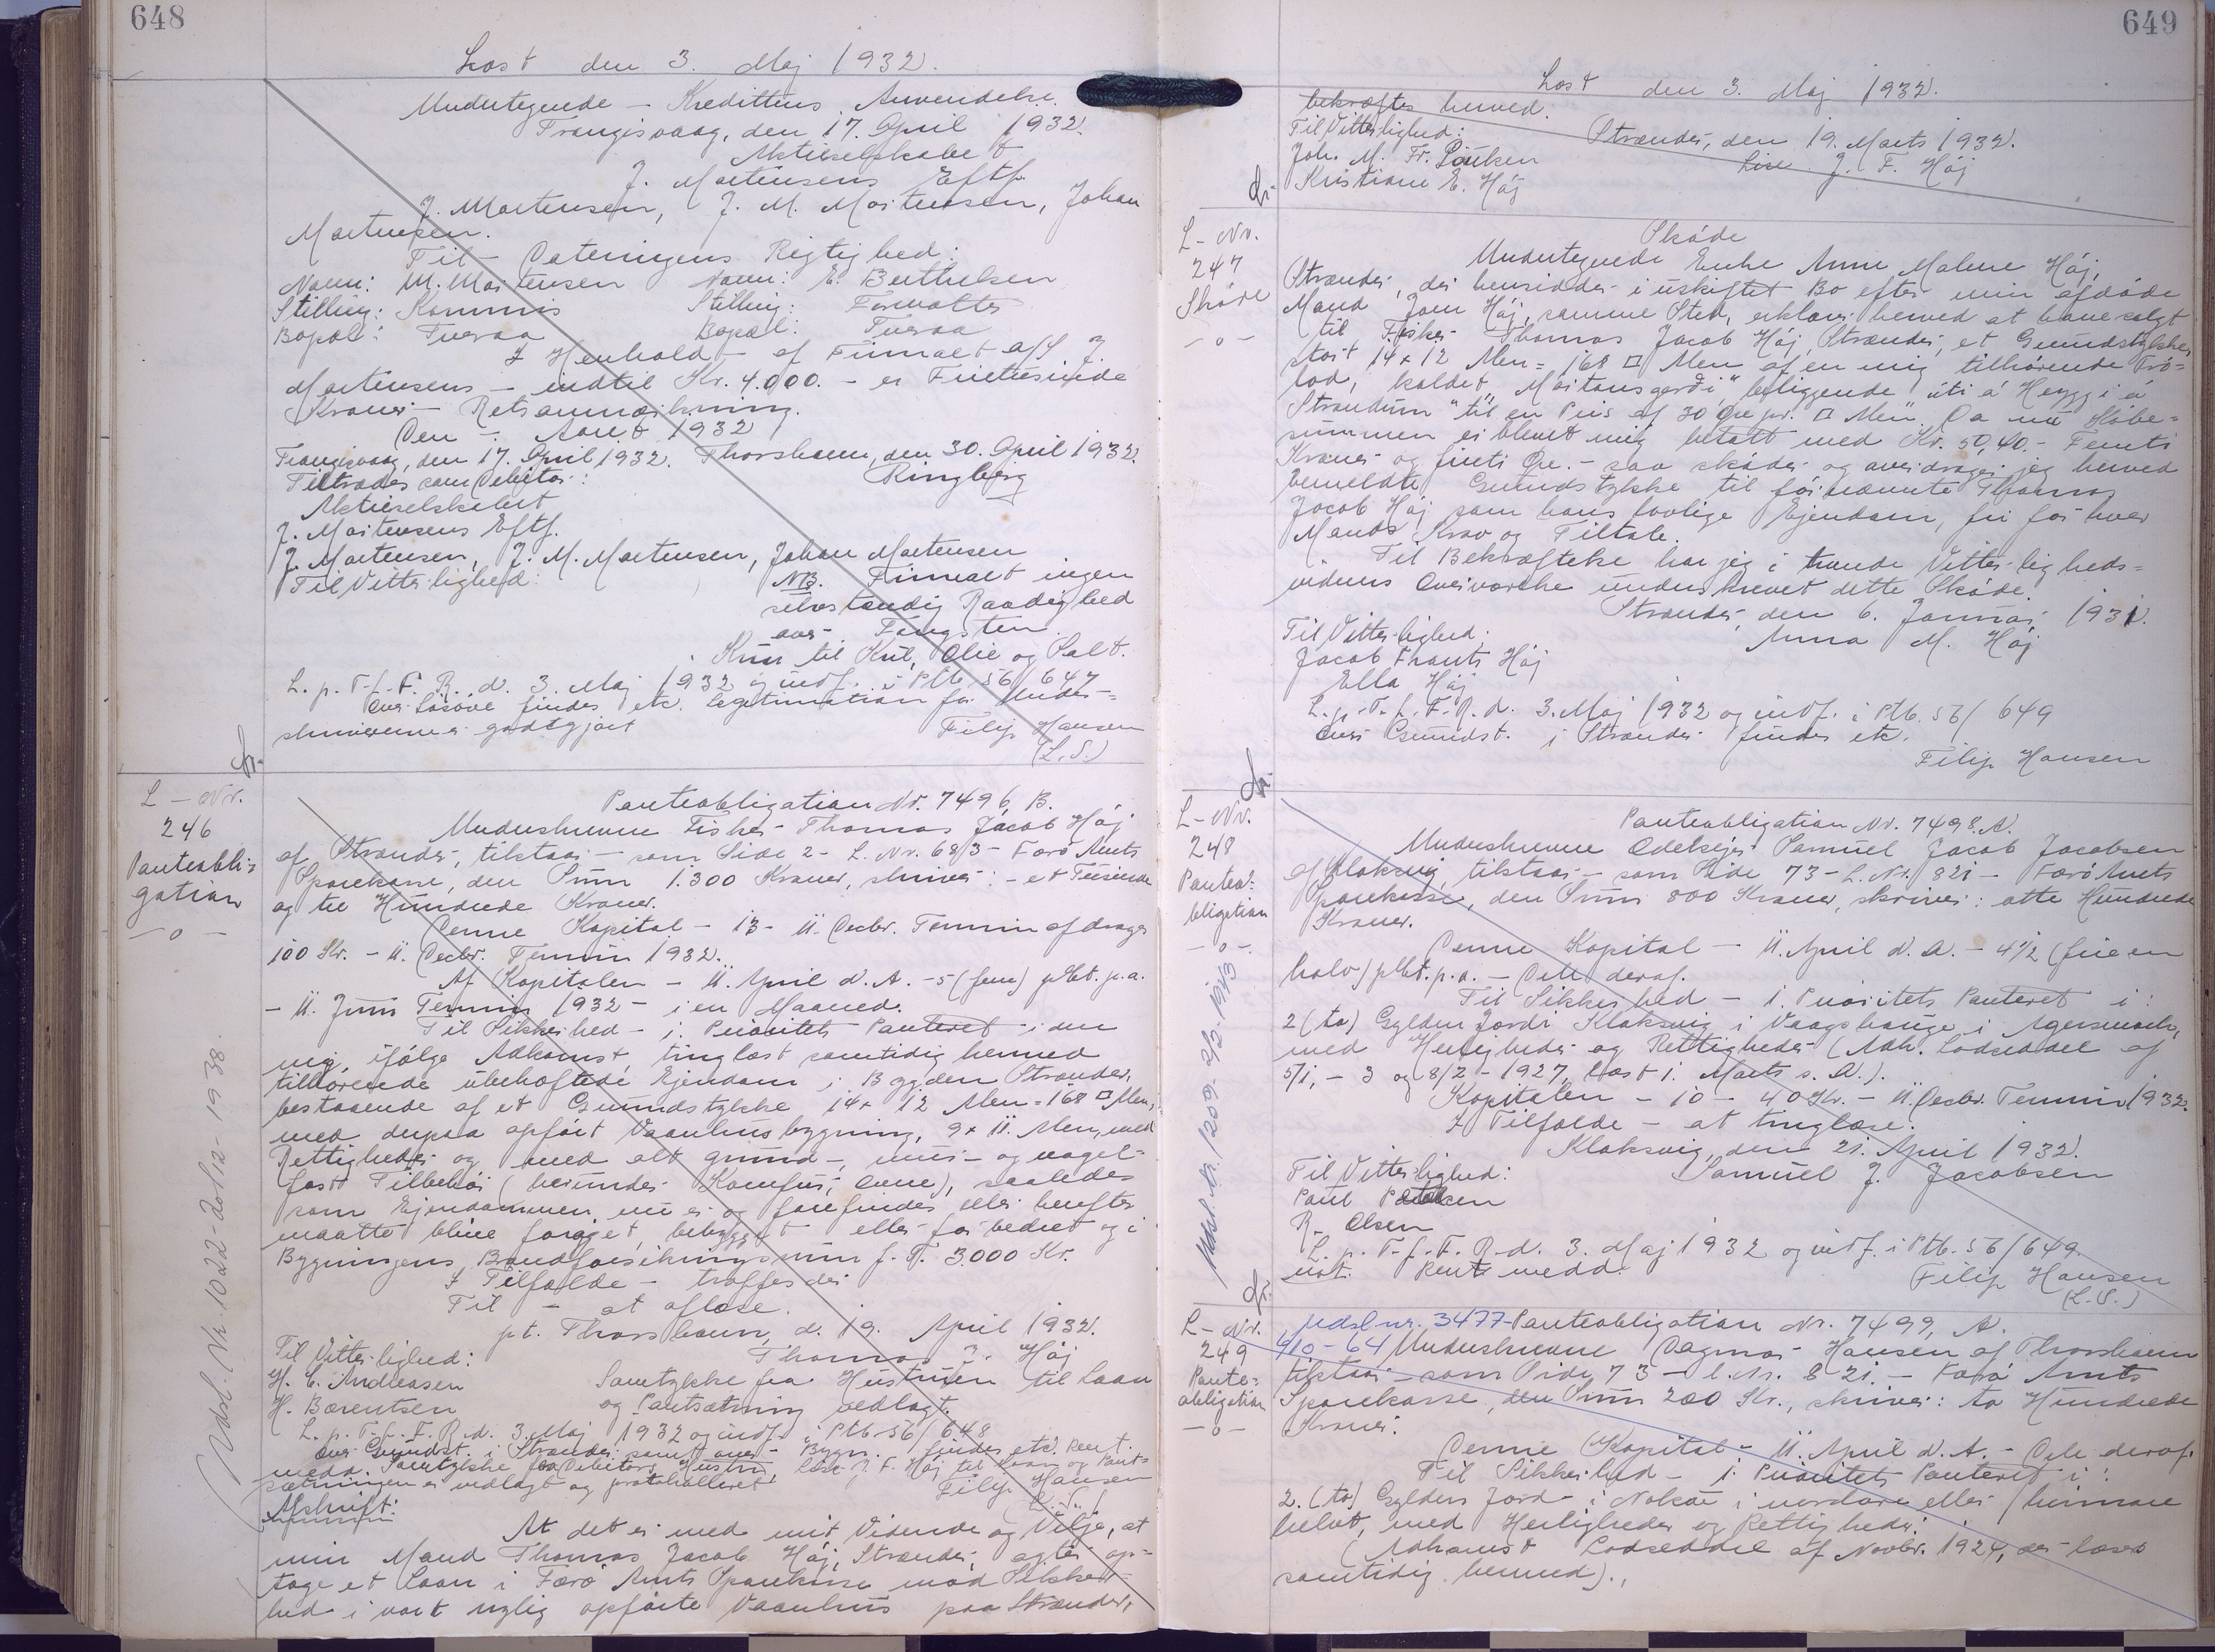 648
Læst den 3. Maj 1932.
Undertegnede – Kredittens Anvendelse.
Trangisvaag, den 17. April 1932.
Aktieselskabet
J. Mortensens Eftf.
J. Mortensen, J. M. Mortensen, Johan
Mortensen.
Til – Dateringens Rigtighed:
Navn: M. Mortensen Navn: E. Berthelsen
Stilling: Kommis Stilling: Forvalter
Bopæl: Tveraa Bopæl: Tveraa
I Henhold – af Firmaet A/S J.
Mortensens – indtil Kr. 4.000. – er Firetusinde
Kroner – Retsanmærkning.
Den – Aaret 1932
Trangisvaag, den 17. April 1932. Thorshavn, den 30. April 1932.
Tiltrædes som Debitor: Ringbjerg
Aktieselskabet
J. Mortensens Eftf.
J. Mortensen, J. M. Mortensen, Johan Mortensen
Til Vitterlighed: NB. Firmaet ingen
selvstændig Raadighed
over Fangsten
Kun til Kul, Olie og Salt.
L. p. T. f. F. R. d. 3. Maj 1932 og indf. i Ptb. 56/647
Over Løsøre findes etc. Legitimation for Under-
skriverne er godtgjort Filip Hansen
(L.S.)
L – Nr.
246
Panteobli-
gation
– o –
Panteobligation Nr. 7496, B.
Underskrevne Fisker Thomas Jacob Høj
af Strænder, tilstaar – som Side 2 – L. Nr. 68/3 – Færø Amts
Sparekasse, den Sum 1.300 Kroner, skriver: – et Tusinde
og tre Hundrede Kroner.
Denne Kapital – 13 – 11. Decbr. Termin afdrages
100 Kr. – 11. Decbr. Termin 1932.
Af Kapitalen – 11. April d. A. – 5 (fem) pCt. p.a.
– 11. Juni Termin 1932 – i en Maaned.
Til Sikkerhed – 1. Prioritets Panteret – i den
mig, ifølge Adkomst, tinglæst samtidig hermed
tilhørende ubehæftede Ejendom i Bygden Strænder,
bestaaende af et Grundstykke 14 x 12 Alen = 168 □ Alen,
med derpaa opført Vaanhusbygning, 9 x 11. Alen, med
Rettigheder og med alt grund-, mur- og nagel-
fast Tilbehør (herunder Komfur, Ovne), saaledes
som Ejendommen nu er og forefindes eller herefter
maatte blive forøget, bebygget eller forbedret og i
Bygningens Brandforsikringssum f. T. 3.000 Kr.
I Tilfælde – træffes der
Til – at aflæse.
pt. Thorshavn, d. 19. April 1932.
Til Vitterlighed: Thomas J. Høj
H. C. Andreasen Samtykke fra Hustruen til Laan
H. Bærentsen og Pantsætning vedlagt.
L. p. T. f. F. R. d. 3. Maj 1932 og indf. i Ptb. 56/648
Over Grundst. i Strænder samt over Bygn. findes etc. Rent.
medd. Samtykke fra Debitors Hustru Lise J. F. Høj til Laan og Pant-
sætningen er vedlagt og protokolleret. Filip Hansen
(L.S.)
Afskrift:
At det er med mit Vidende og Vilje, at
min Mand Thomas Jacob Høj, Strænder, agter op-
tage et Laan i Færø Amts Sparekasse mod Sikker-
hed i vort nylig opførte Vaanhus paa Strænder,
Udsl. Nr. 1022 – 20/12 – 1938.
649
Læst den 3. Maj 1932.
bekræftes herved.
Til Vitterlighed: Strænder, den 19. Marts 1932.
Joh. M. Fr. Poulsen Lise J. F. Høj
Kristiane E. Høj
L – Nr.
247
Skøde
– o –
Skøde
Undertegnede Enke Anne Malene Høj,
Strænder, der hensidder i uskiftet Bo efter min afdøde
Mand Joen Høj, samme Sted, erklærer herved at have solgt
til Fisker Thomas Jacob Høj, Strænder, et Grundstykke
stort 14 x 12 Alen = 168 □ Alen af en mig tilhørende Trø-
lod, kaldet "Mortansgerði" beliggende "úti á Heyggi á
Strondum" til en Pris af 30 Øre pr. □ Alen. Da nu Købe-
summen er blevet mig betalt med Kr. 50,40 – Femti
Kroner og firti Øre. – saa skøder og overdrager jeg herved
bemeldte Grundstykke til førnævnte Thomas
Jacob Høj som hans lovlige Ejendom, fri for hver
Mands Krav og Tiltale.
Til Bekræftelse har jeg i tvende Vitterligheds-
vidners Overværelse underskrevet dette Skøde.
Strænder, den 6. Januar 1931.
Til Vitterlighed: Anna M. Høj
Jacob Frants Høj
Ella Høj
L. p. T. f. F. R. d. 3. Maj 1932 og indf. i Ptb. 56/649
Over Grundst. i Strænder findes etc.
Filip Hansen
L – Nr.
248
Panteo-
bligation
– o –
Udsl. Nr. 1209. 2/3 – 1943
Panteobligation Nr. 7498. A.
Underskrevne Odelsejer Samuel Jacob Jacobsen
af Klaksvig, tilstaar – som Side 73 – L. Nr. 821 – Færø Amts
Sparekasse, den Sum 800 Kroner, skriver: otte Hundrede
Kroner.
Denne Kapital – 11. April d. A. – 4½ (fire en
halv) pCt. p.a. – Dele deraf.
Til Sikkerhed – 1. Prioritets Panteret i:
2 (to) Gylden Jord i Klaksvig i Vaagshauge i Agersmark,
med Herligheder og Rettigheder (Adk. Lodseddel af
5/1, – 3 og 8/2 – 1927, læst 1. Marts s. A.).
Kapitalen – 10 – 40 Kr. – 11. Decbr. Termin 1932.
I Tilfælde – at tinglæse.
Klaksvig, den 21. April 1932.
Til Vitterlighed: Samuel J. Jacobsen
Paul
R. Olsen
L. p. T. f. F. R. d. 3. Maj 1932 og indf. i Ptb. 56/649.
Rent medd. Filip Hansen
(L.S.)
L – Nr.
249
Pante-
obligation
– o –
Udsl. nr. 3477 Panteobligation Nr. 7499, A.
6/10 – 64 Underskrevne Dagmar Hansen af Thorshavn
tilstaar – som Side 73 – L. Nr. 821 – Færø Amts
Sparekasse, den Sum 200 Kr., skriver: to Hundrede
Kroner.
Denne Kapital – 11. April d. A. – Dele deraf.
Til Sikkerhed – 1. Prioritets Panteret i:
2. (to) Gylden Jord i Nolsø i nordare eller heimare
helvt, med Herligheder og Rettigheder.
(Adkomst Lodseddel af Novbr. 1924, der læses
samtidig hermed).,